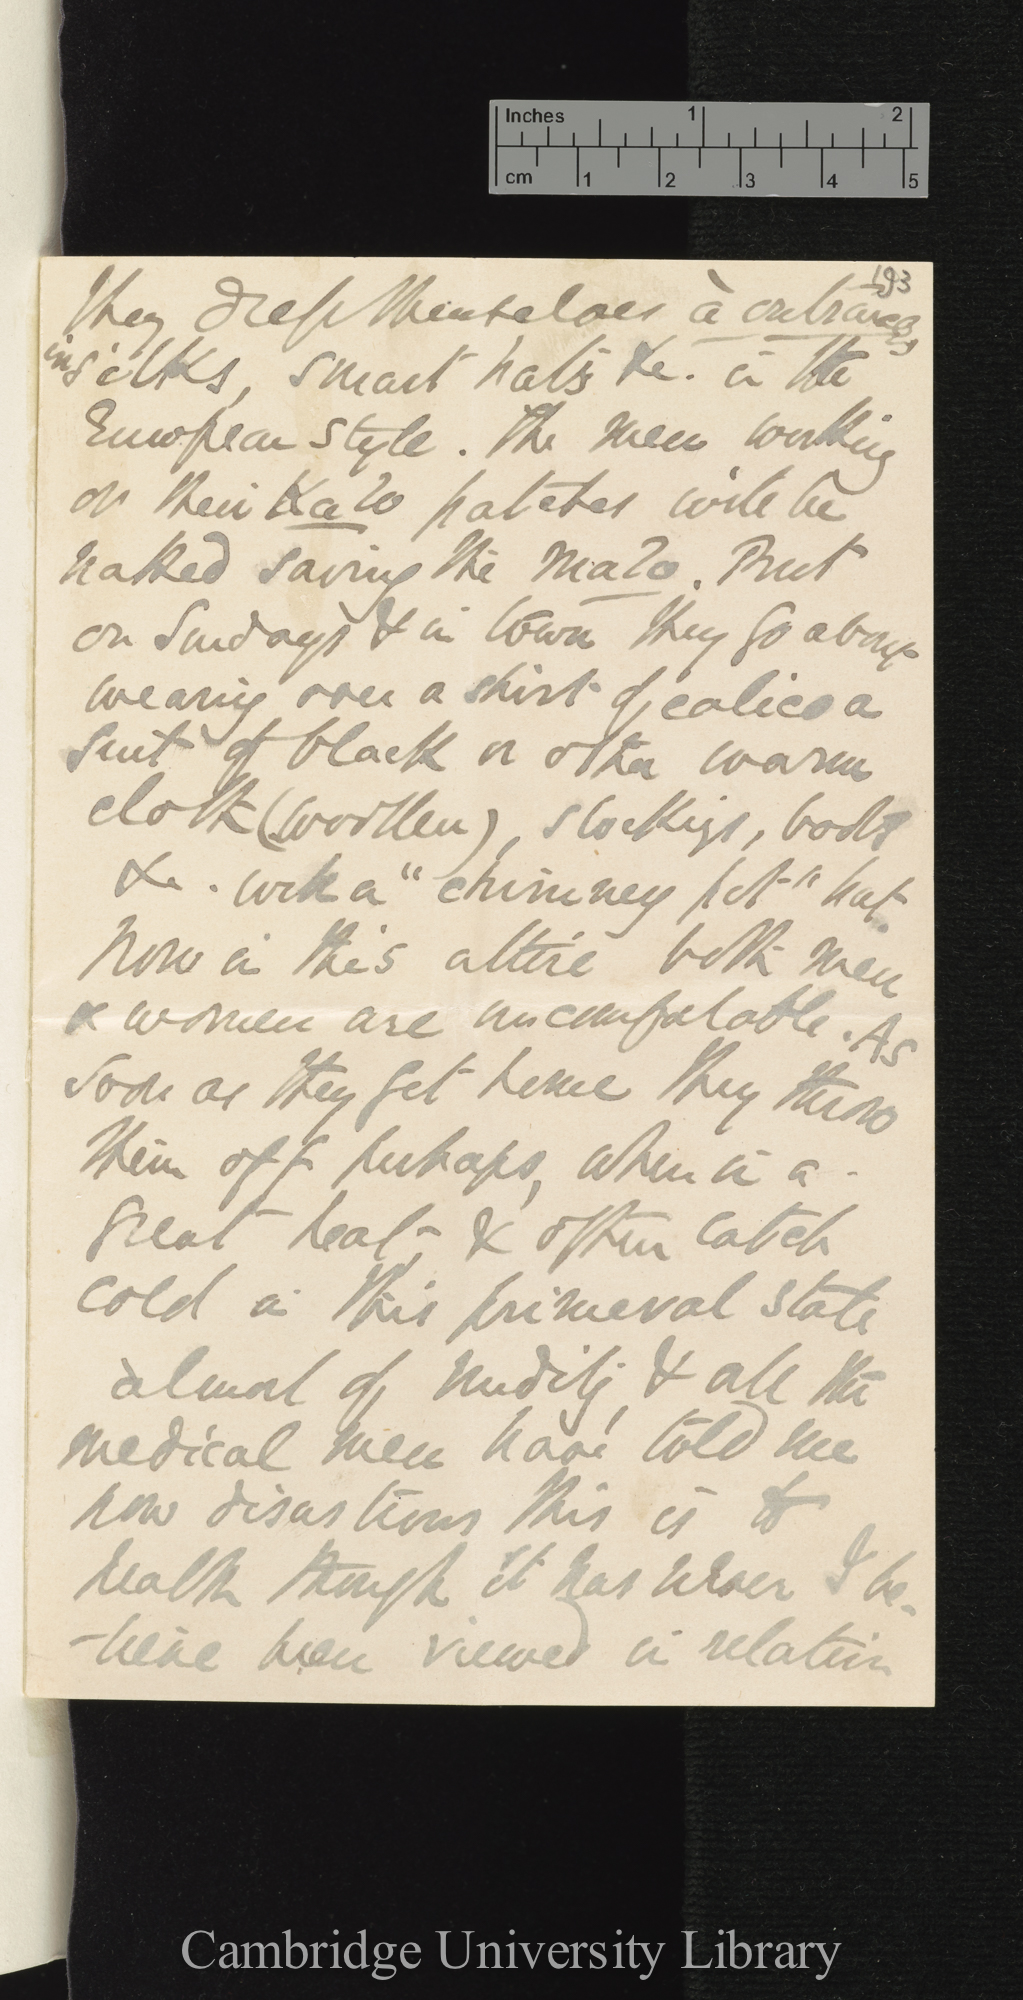 Inches 1 2
cm 1 2 3 4 5
193
they dress themselves à outrance,
in silks, smart hats &c. in the
European style. The men working
on their Kalo patches will be
naked saving the malo. But
on Sundays & in town they go about
wearing over a shirt of calico a
suit of black or other warm
cloth (woollen), stockings, boots
&c. with a "chimney pot" hat.
Now in this attire both men
& women are uncomfortable. As
soon as they get home they throw
them off perhaps, when in a
great heat, & often catch
cold in this primeval state
almost of nudity, & all the
medical men have told me
how disastrous this is to
health though it has never I be-
-lieve been viewed in relation
Cambridge University Library